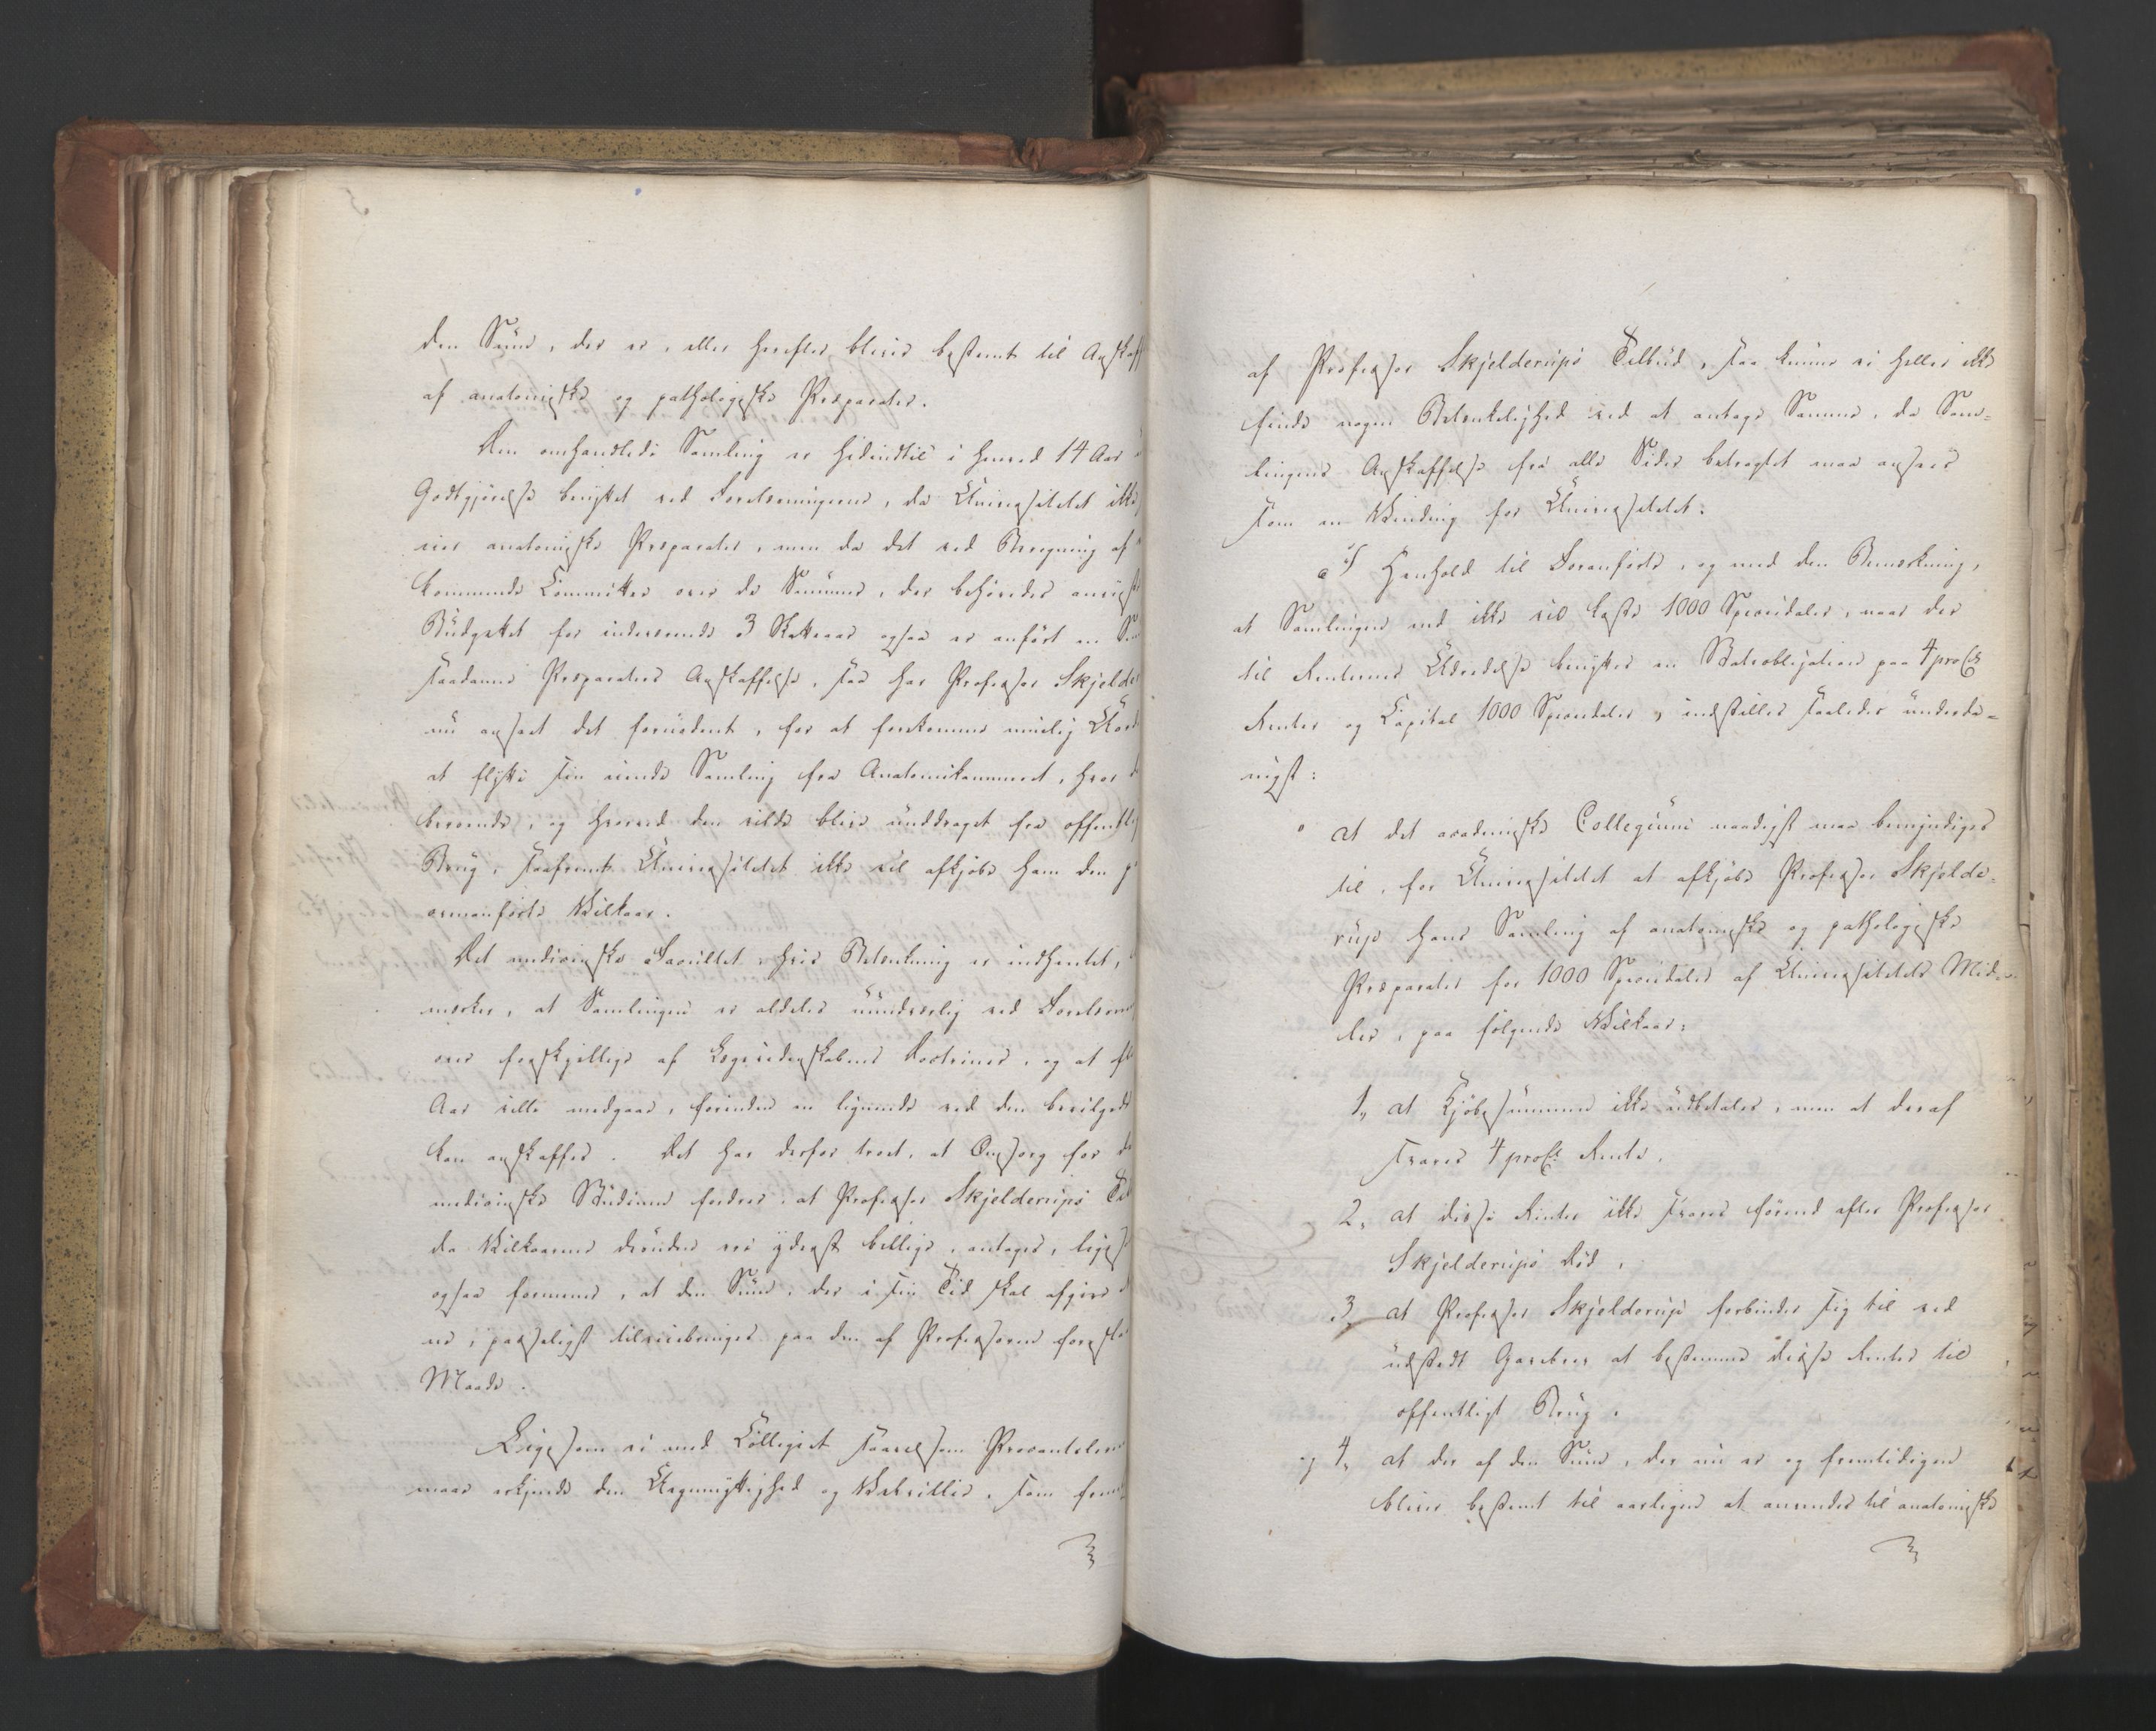 den Sum, der er, eller herefter bliver bestemt til Anskaff
af anatomiske og pathologiske Præparater.
Den omhandlede Samling er hidindtil i henved 14 Aar
Godtgjørelse benyttet ved Forelæsningerne, da Universitetet ikke
eier anatomiske Præparater, men da det ved Beregning af
kommende Committee over de Summer, der behøvedes
Budgettet for indeværende 3 Skatteaar ogsaa er anført en Sum
saadanne Præparaters Anskaffelse, saa har Professor Skjelde
nu anseet det fornødent, for at forekomme muelig
at flytte sin eiende Samling fra Anatomikammeret, hvor
beroende, og hvorved den vilde blive unddraget fra offentlig
Brug, saafremt Universitetet ikke vil afkjøbe ham den
ovenanførte Vilkaar.
Det medicinske Facultet, hvis Betænkning er indhentet,
mærker, at Samlingen er aldeles uundværlig ved Forelæsn
over forskjellige af Lægevidenskabens Doctriner, og at fl
Aar ville medgaae, forinden en lignende ved den bevilgede
kan anskaffes. Det har derfor troet, at Omsorg for de
medicinske Studium fordrer, at Professor Skjelderups Til
da Vilkaarene desuden ere yderst billige, antages, liges
ogsaa formenes, at den Sum, der i sin Tid skal afgives
es, passeligst tilveiebringes paa den af Professoren foresla
Maade.
Ligesom vi med Collegiet saavelsom Procantsleren
maae erkjende den Uegennyttighed og Velvillie, som frem-
af Professor Skjelderups Tilbud, saa kunne vi heller ikke
finde nogen Betænkelighed ved at antage Samme, da Sam-
lingens Anskaffelse fra alle Sider betragtet maa ansees
som en Vinding for Universitetet.
I Henhold til Foranførte, og med den Bemærkning,
at Samlingen end ikke vil koste 1000 Speciesdaler, naar der
til Renternes Udredelse benyttes en Statsobligation paa 4 proCt
Renter og Capital 1000 Speciesdaler, indstilles saaledes underda-
nigst:
at det academiske Collegium naadigst maa bemyndiges
til, for Universitetet at afkjøbe Professor Skjelde-
rup hans Samling af anatomiske og pathologiske
Præparater for 1000 Speciesdaler af Universitetets Mid-
ler, paa følgende Vilkaar:
1, at Kjøbesummen ikke udbetales, men at deraf
svares 4 proCt Rente.
2, at disse Renter ikke svares førend efter Professor
Skjelderups Død,
3, at Professor Skjelderup forbinder sig til ved
udstedt Gavebrev at bestemme disse Renter til
offentligt Brug,
og 4, at der af den Sum, der nu er og fremtidigen
bliver bestemt til aarligen at anvendes til anatomiske